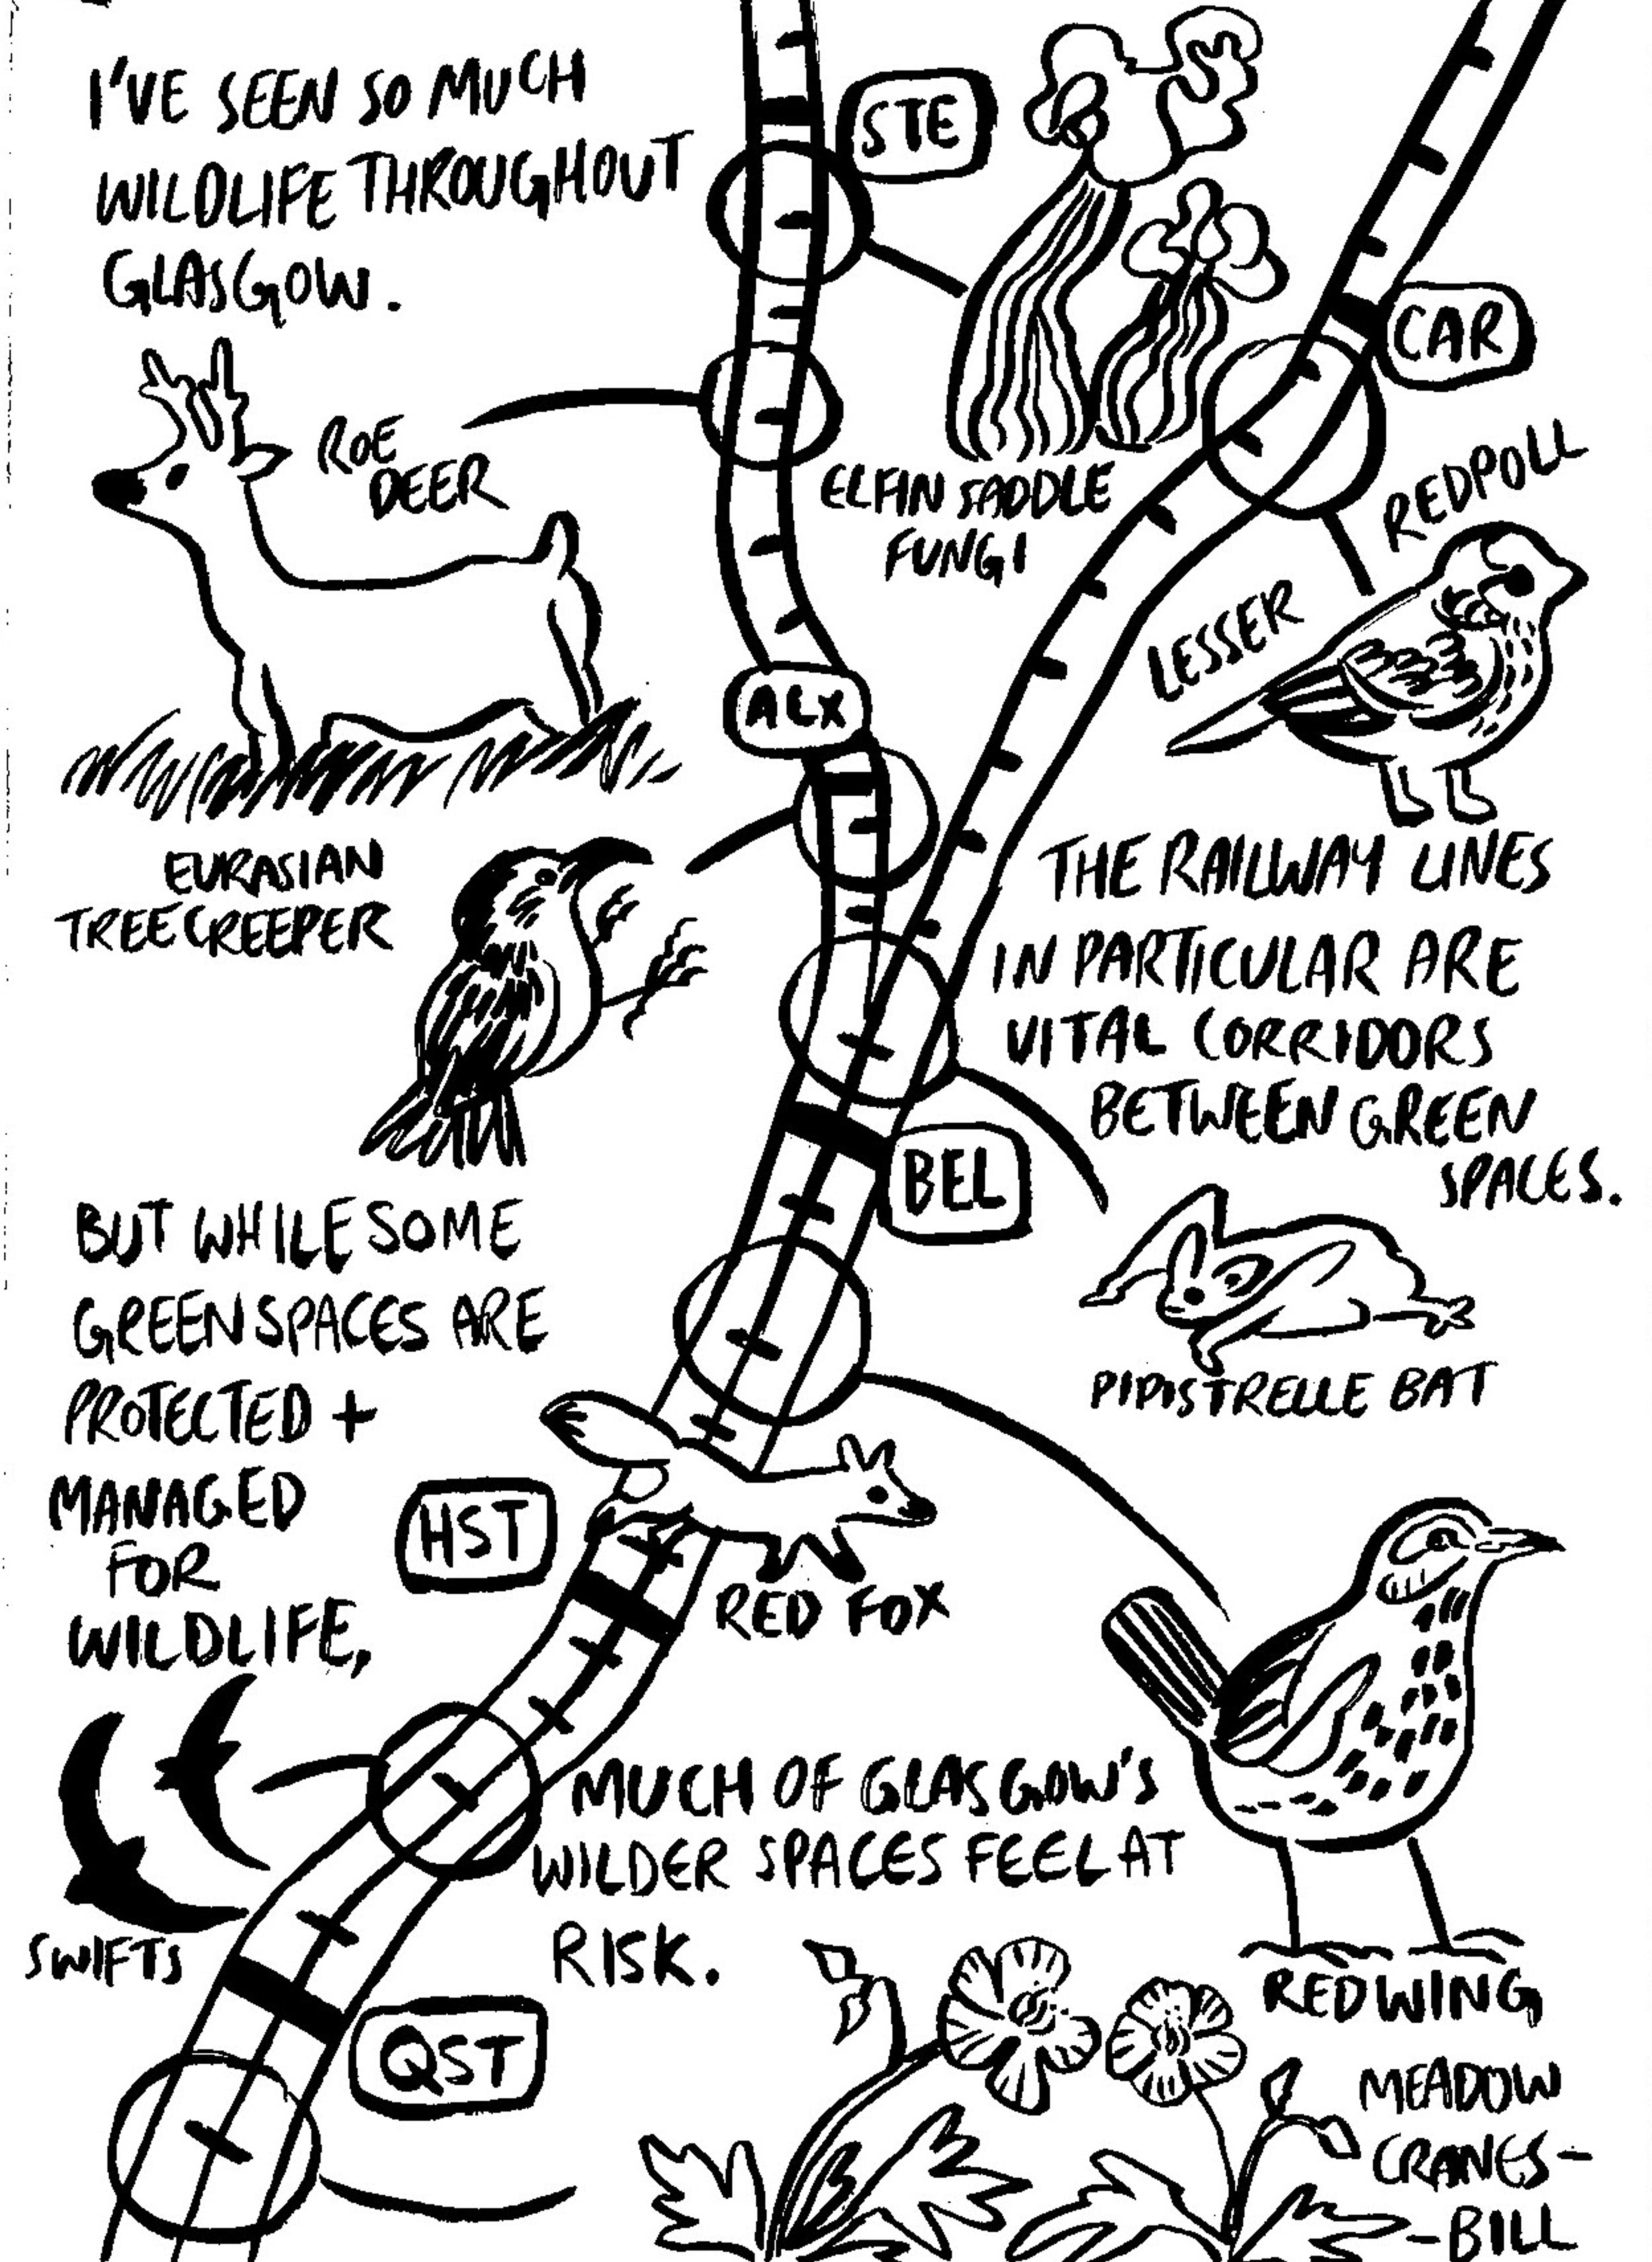 I'VE SEEN SO MUCH
WILDLIFE THROUGHOUT
GLASGOW.
STE
CAR
ROE
DEER
ELFIN SADDLE
FUNGI
LESSER
REDPOLL
ALX
EURASIAN
TREECREEPER
THE RAILWAY LINES
IN PARTICULAR ARE
VITAL CORRIDORS
BETWEEN GREEN
SPACES.
BEL
PIPISTRELLE BAT
BUT WHILE SOME
GREENSPACES ARE
PROTECTED +
MANAGED
FOR
WILDLIFE,
HST
RED FOX
MUCH OF GLASGOW'S
WILDER SPACES FEEL AT
RISK.
SWIFTS
QST
REDWING
MEADOW
CRANES-
-BILL